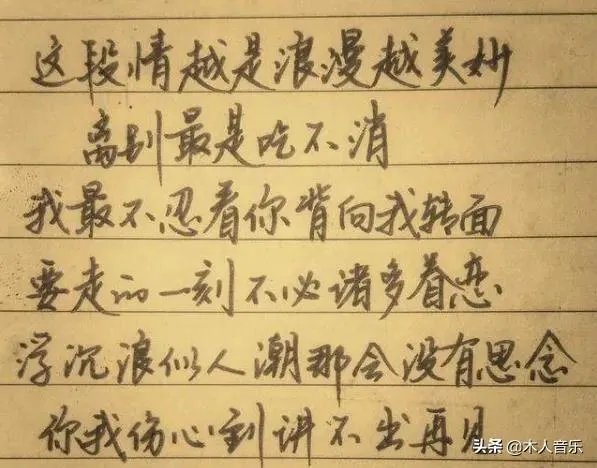 这段情越是浪漫越美妙
离别最是吃不消
我最不忍看你背向我转面
要走的一刻不必诸多眷恋
浮沉浪似人潮那会没有思念
你我伤心到讲不出再见
头条 @木人音乐